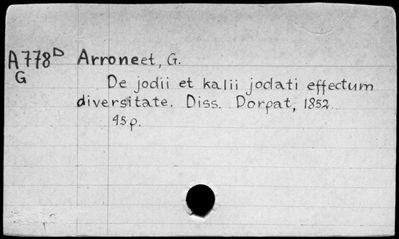 A778ᴰ Arroneet, G.
G
De jodii et kalii jodati effectum
diversitate. Diss. Dorpat, 1852.
45p.